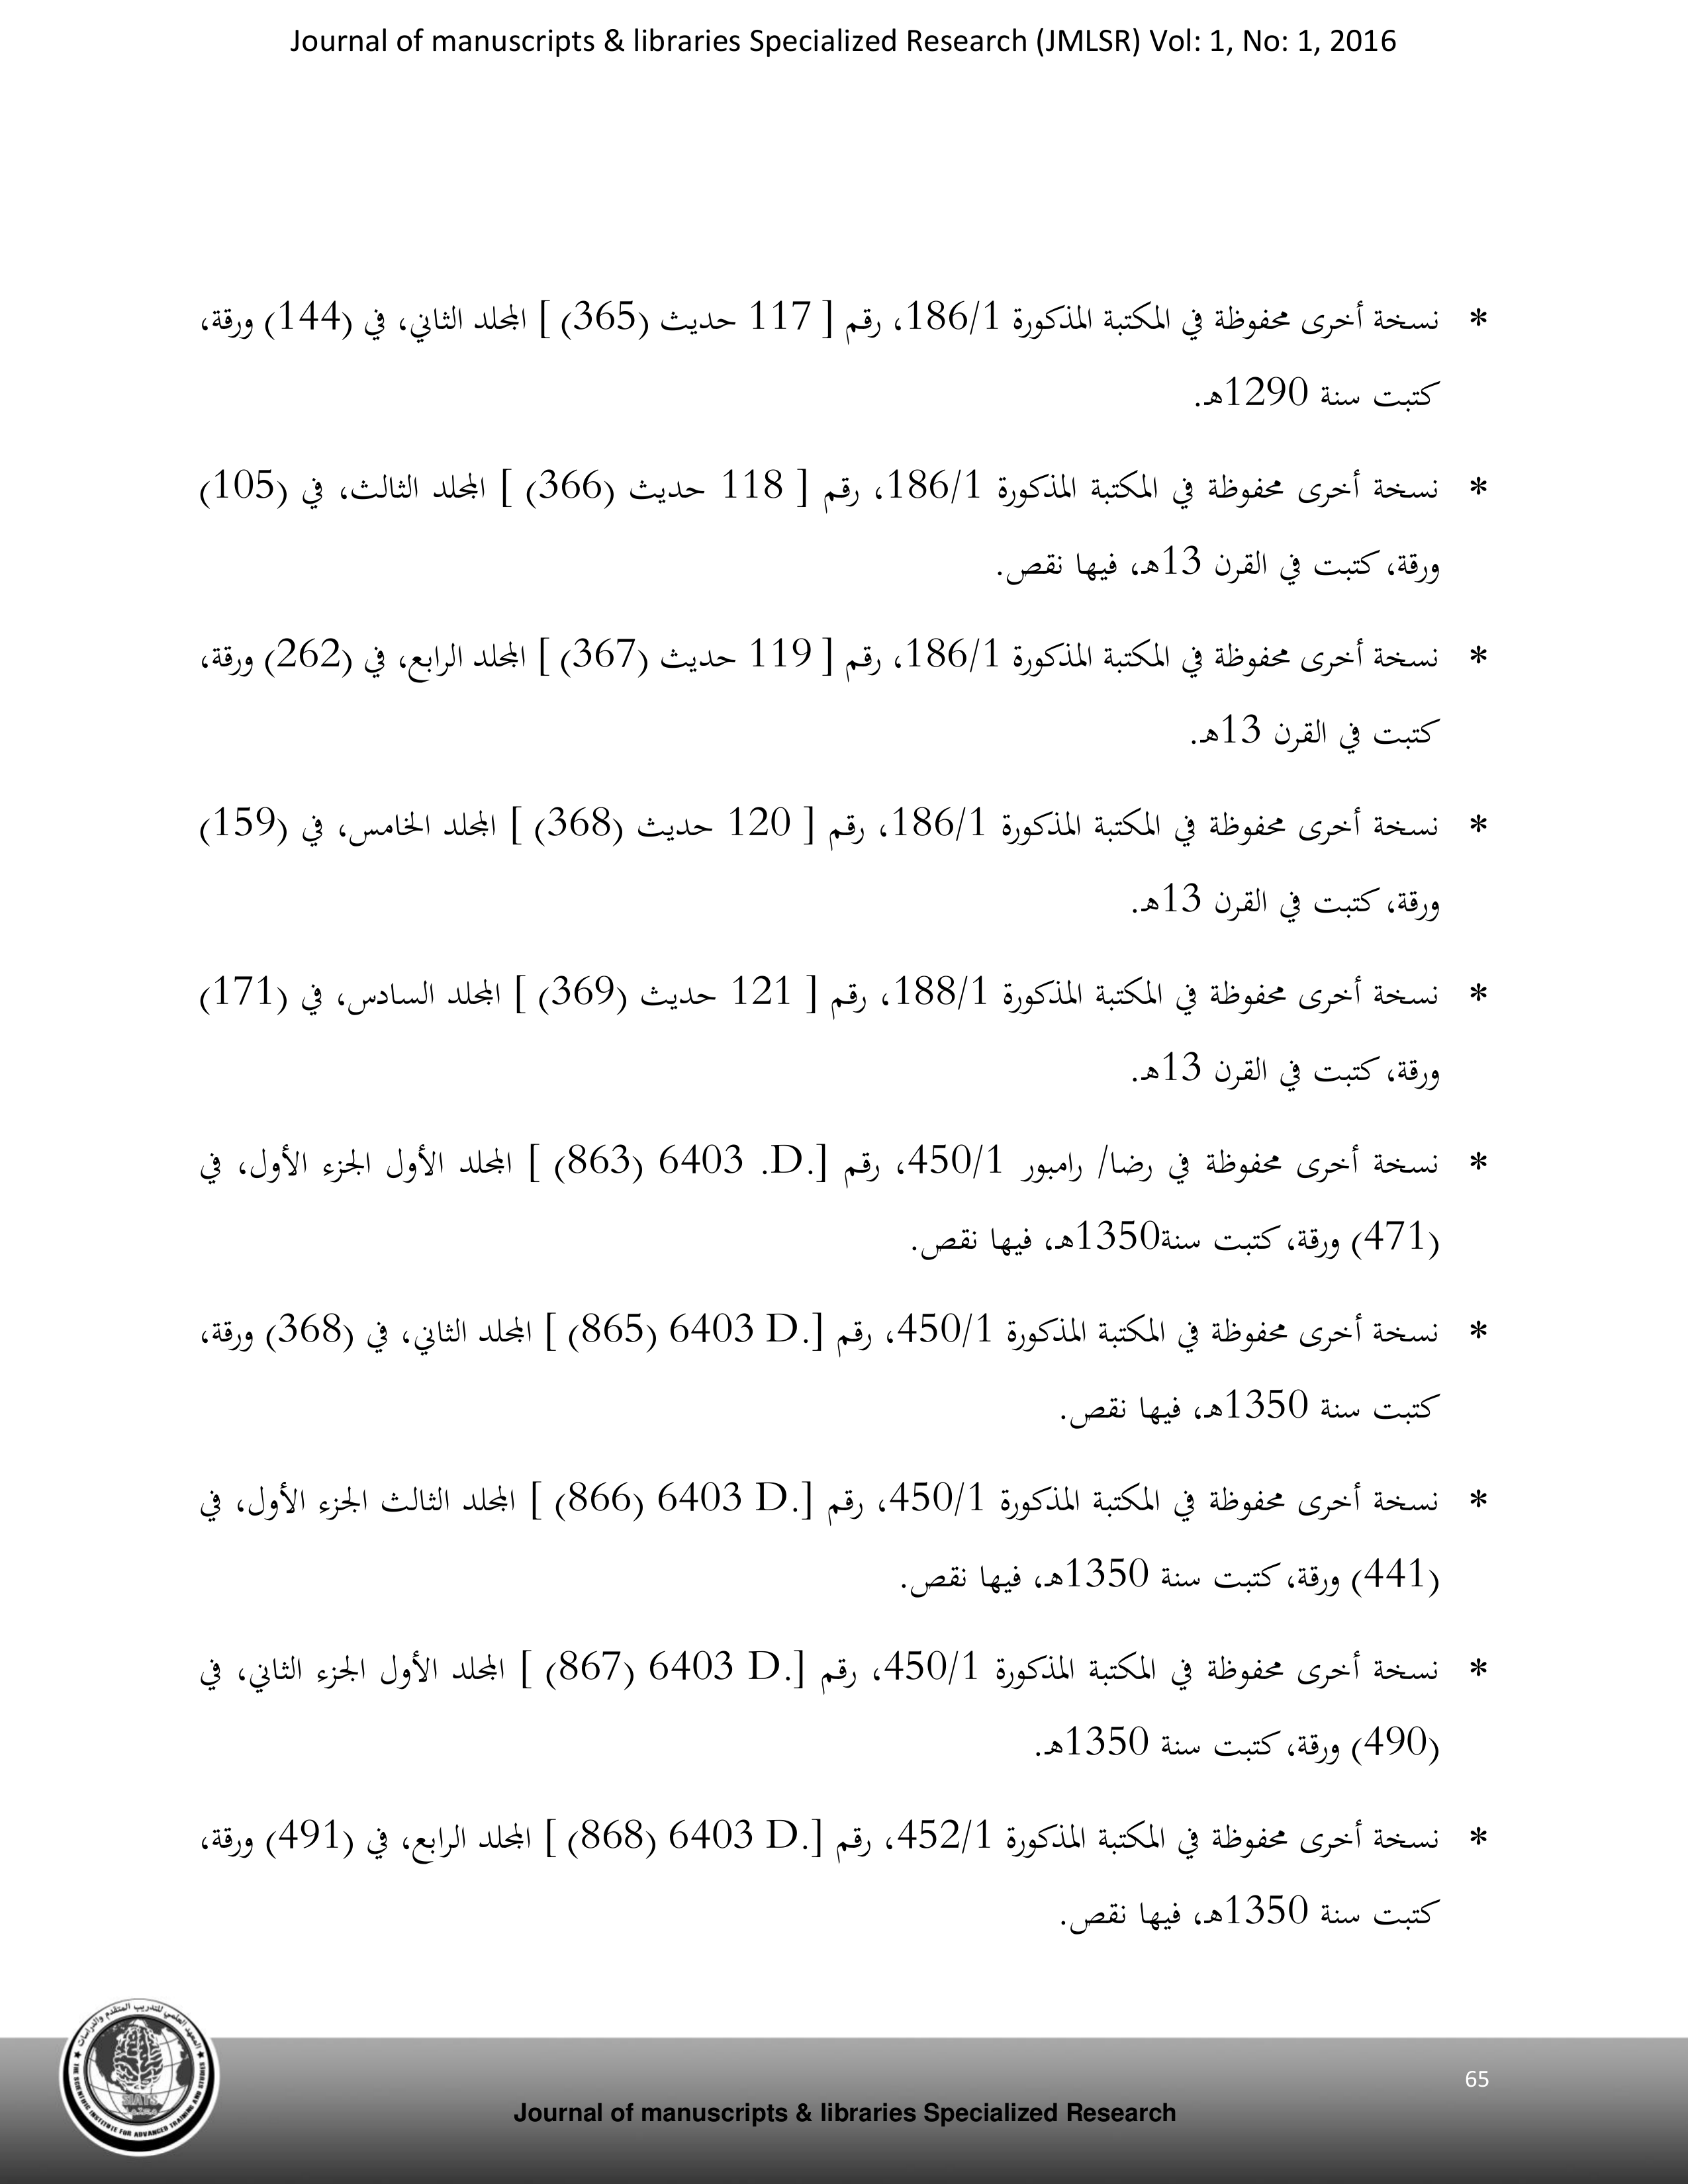 Journal of manuscripts & libraries Specialized Research (JMLSR) Vol: 1, No: 1, 2016
* نسخة أخرى محفوظة في المكتبة المذكورة 186/1، رقم [ 117 حديث (365) ] المجلد الثاني، في (144) ورقة،
كتبت سنة 1290هـ.
* نسخة أخرى محفوظة في المكتبة المذكورة 186/1، رقم [ 118 حديث (366) ] المجلد الثالث، في (105)
ورقة، كتبت في القرن 13هـ، فيها نقص.
* نسخة أخرى محفوظة في المكتبة المذكورة 186/1، رقم [ 119 حديث (367) ] المجلد الرابع، في (262) ورقة،
كتبت في القرن 13هـ.
* نسخة أخرى محفوظة في المكتبة المذكورة 186/1، رقم [ 120 حديث (368) ] المجلد الخامس، في (159)
ورقة، كتبت في القرن 13هـ.
* نسخة أخرى محفوظة في المكتبة المذكورة 188/1، رقم [ 121 حديث (369) ] المجلد السادس، في (171)
ورقة، كتبت في القرن 13هـ.
* نسخة أخرى محفوظة في رضا/ رامبور 450/1، رقم [.D. 6403 (863) ] المجلد الأول الجزء الأول، في
(471) ورقة، كتبت سنة1350هـ، فيها نقص.
* نسخة أخرى محفوظة في المكتبة المذكورة 450/1، رقم [.D 6403 (865) ] المجلد الثاني، في (368) ورقة،
كتبت سنة 1350هـ، فيها نقص.
* نسخة أخرى محفوظة في المكتبة المذكورة 450/1، رقم [.D 6403 (866) ] المجلد الثالث الجزء الأول، في
(441) ورقة، كتبت سنة 1350هـ، فيها نقص.
* نسخة أخرى محفوظة في المكتبة المذكورة 450/1، رقم [.D 6403 (867) ] المجلد الأول الجزء الثاني، في
(490) ورقة، كتبت سنة 1350هـ.
* نسخة أخرى محفوظة في المكتبة المذكورة 452/1، رقم [.D 6403 (868) ] المجلد الرابع، في (491) ورقة،
كتبت سنة 1350هـ، فيها نقص.
المعهد العلمي للتدريب المتقدم والدراسات
THE SCIENTIFIC INSTITUTE FOR ADVANCED TRAINING AND STUDIES
SIATS
65
Journal of manuscripts & libraries Specialized Research